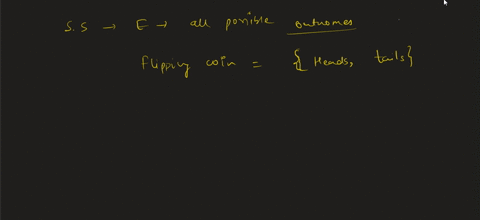 S.S → E → all possible outcomes
flipping coin = {Heads, tails}